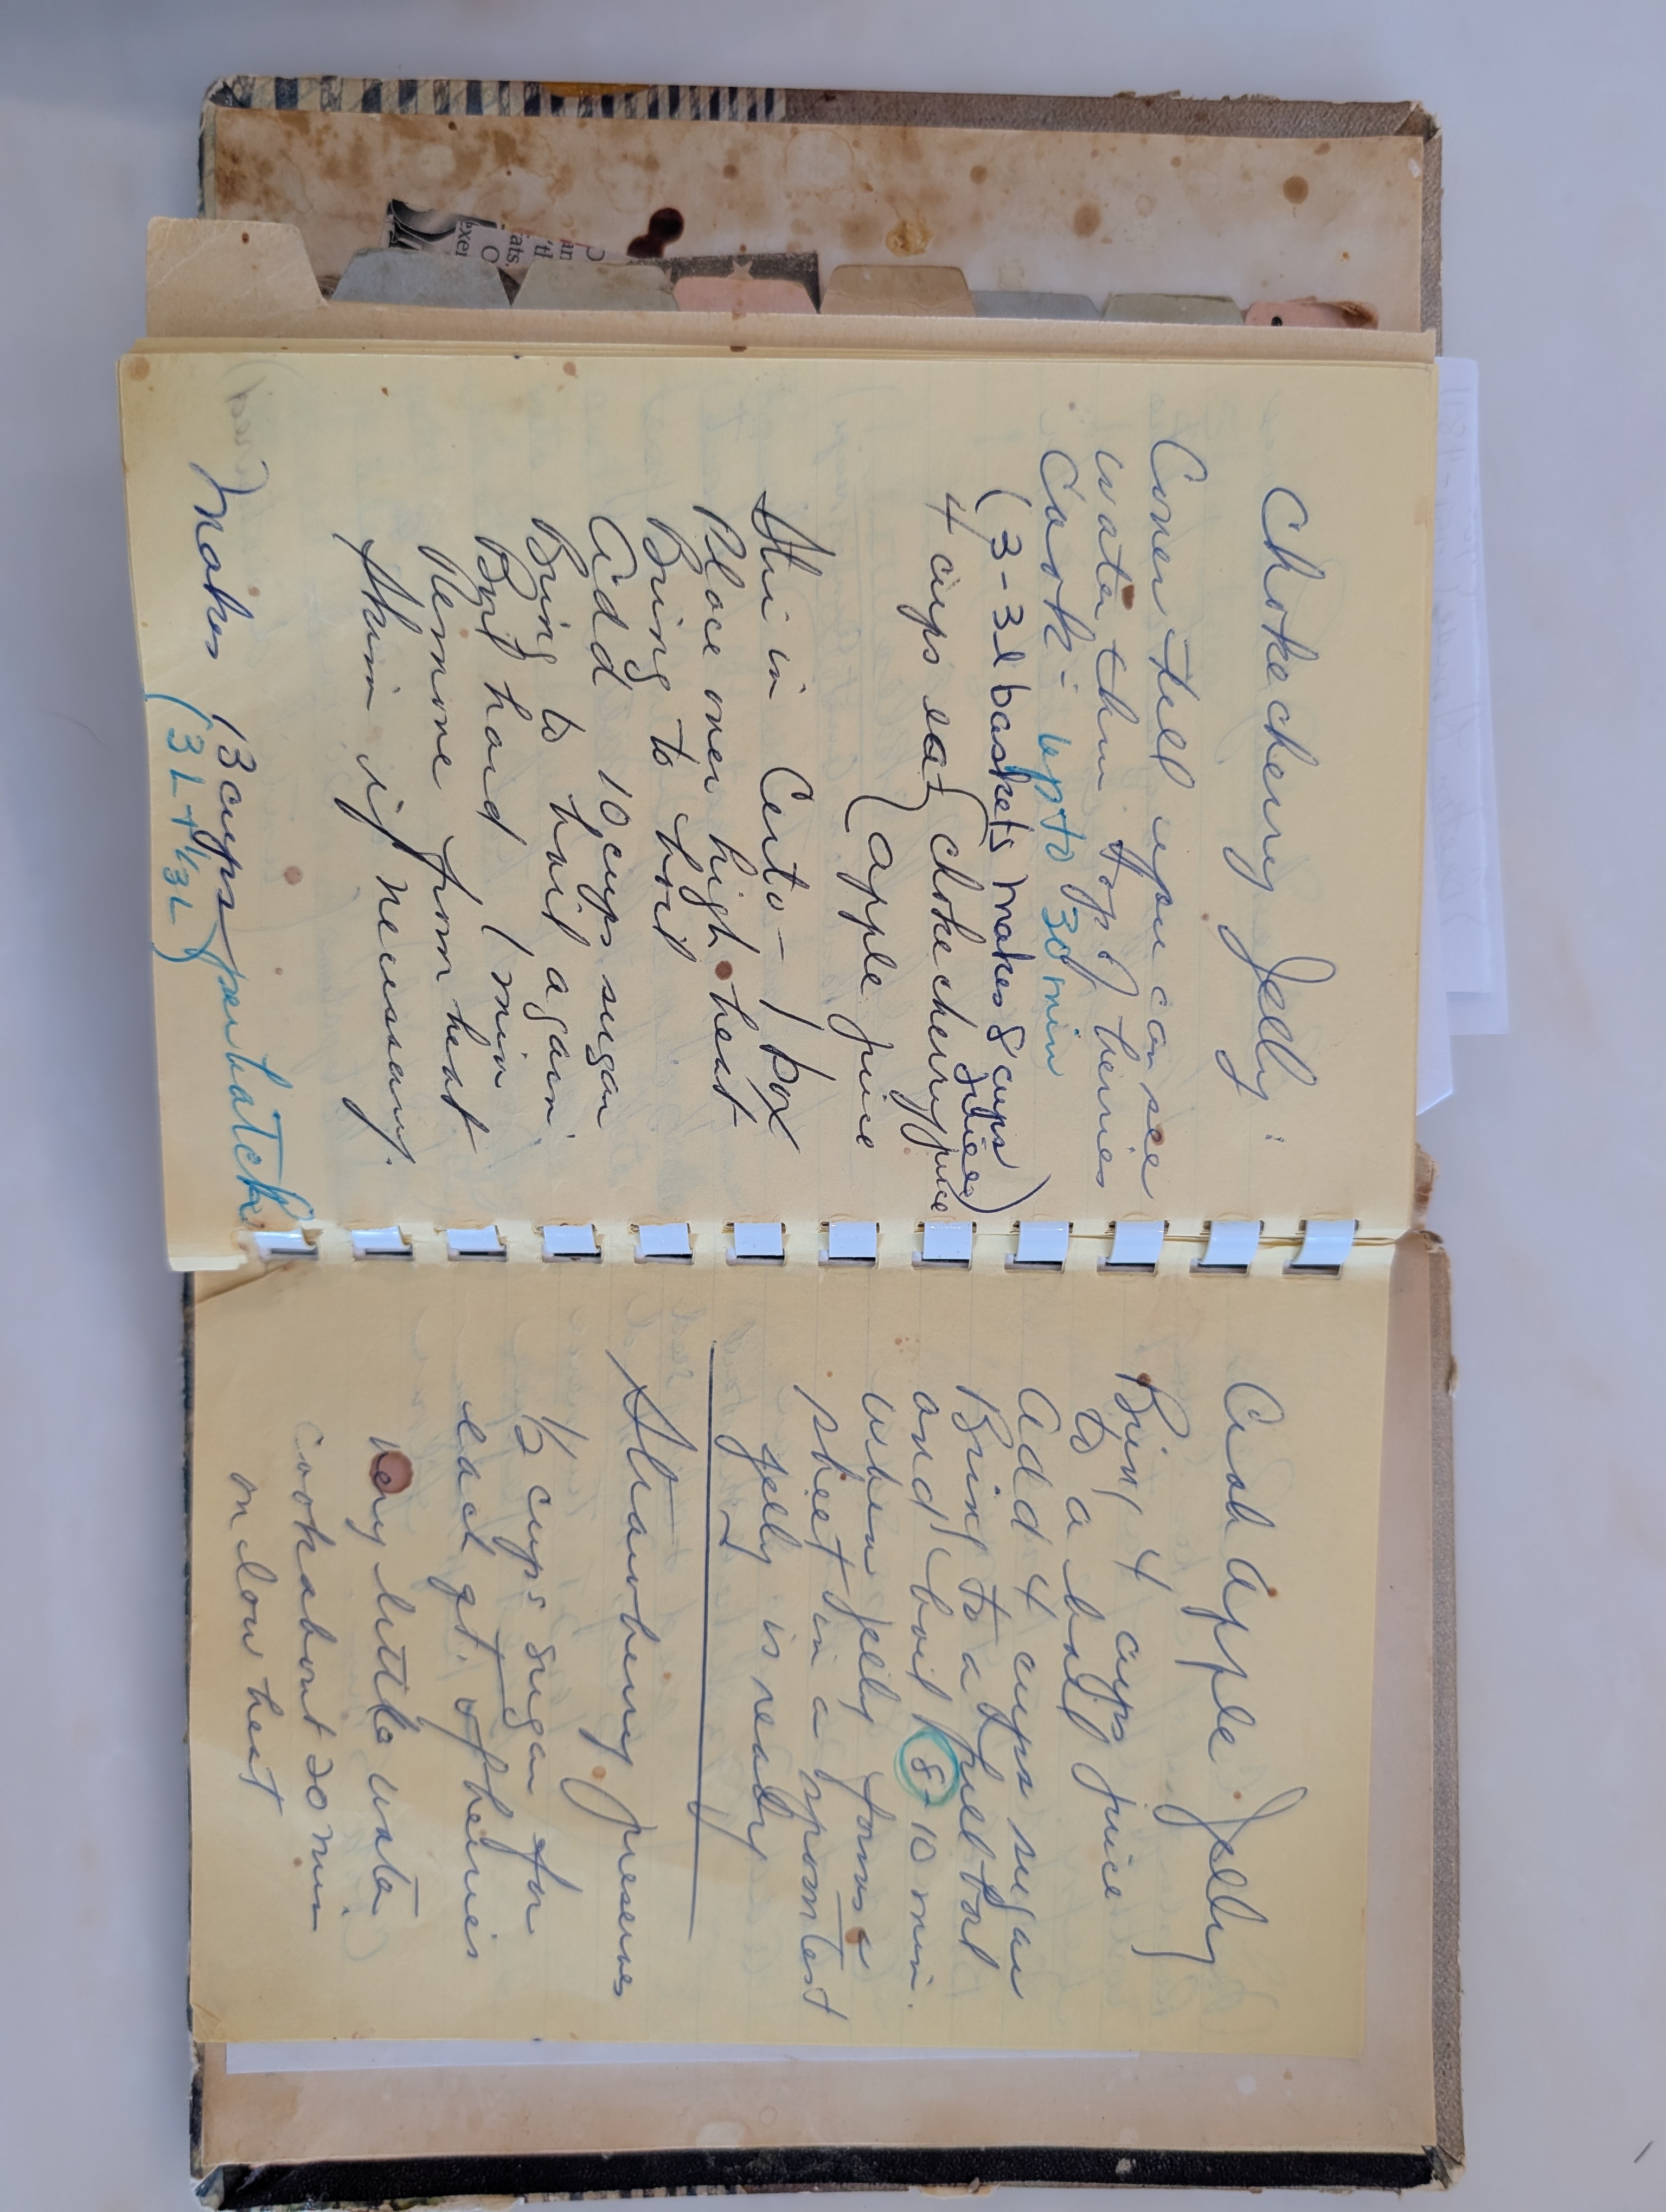 Chokecherry Jelly:
Cover till you can see
water thru top of berries
Cook - up to 30 min
(3-3L baskets makes 8 cups
juice)
4 cups ea { chokecherry juice
{ apple juice
Stir in Certo - 1 box
Place over high heat
Bring to boil
Add 10 cups sugar
Bring to boil again
Boil hard 1 min
Remove from heat
Skim if necessary.
Makes 13 cups per batch
(3 L + 1/3 L)
Crab Apple Jelly
Bring 4 cups juice
to a boil
Add 4 cups sugar
Bring to a full boil
and boil 8-10 min.
When jelly forms a
sheet in a spoon test
jelly is ready
Strawberry preserves
1/2 cups sugar for
each qt. of berries
Very little water
cook about 20 min
on low heat